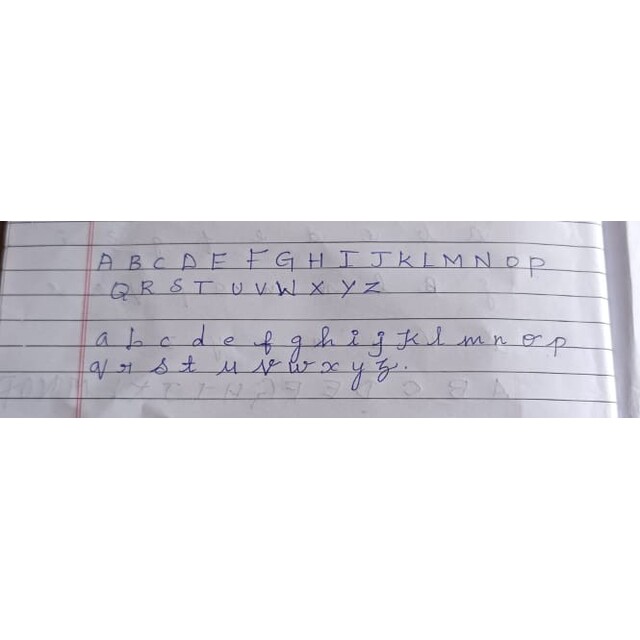 A B C D E F G H I J K L M N O P
Q R S T U V W X Y Z
a b c d e f g h i j k l m n o p
q r s t u v w x y z.